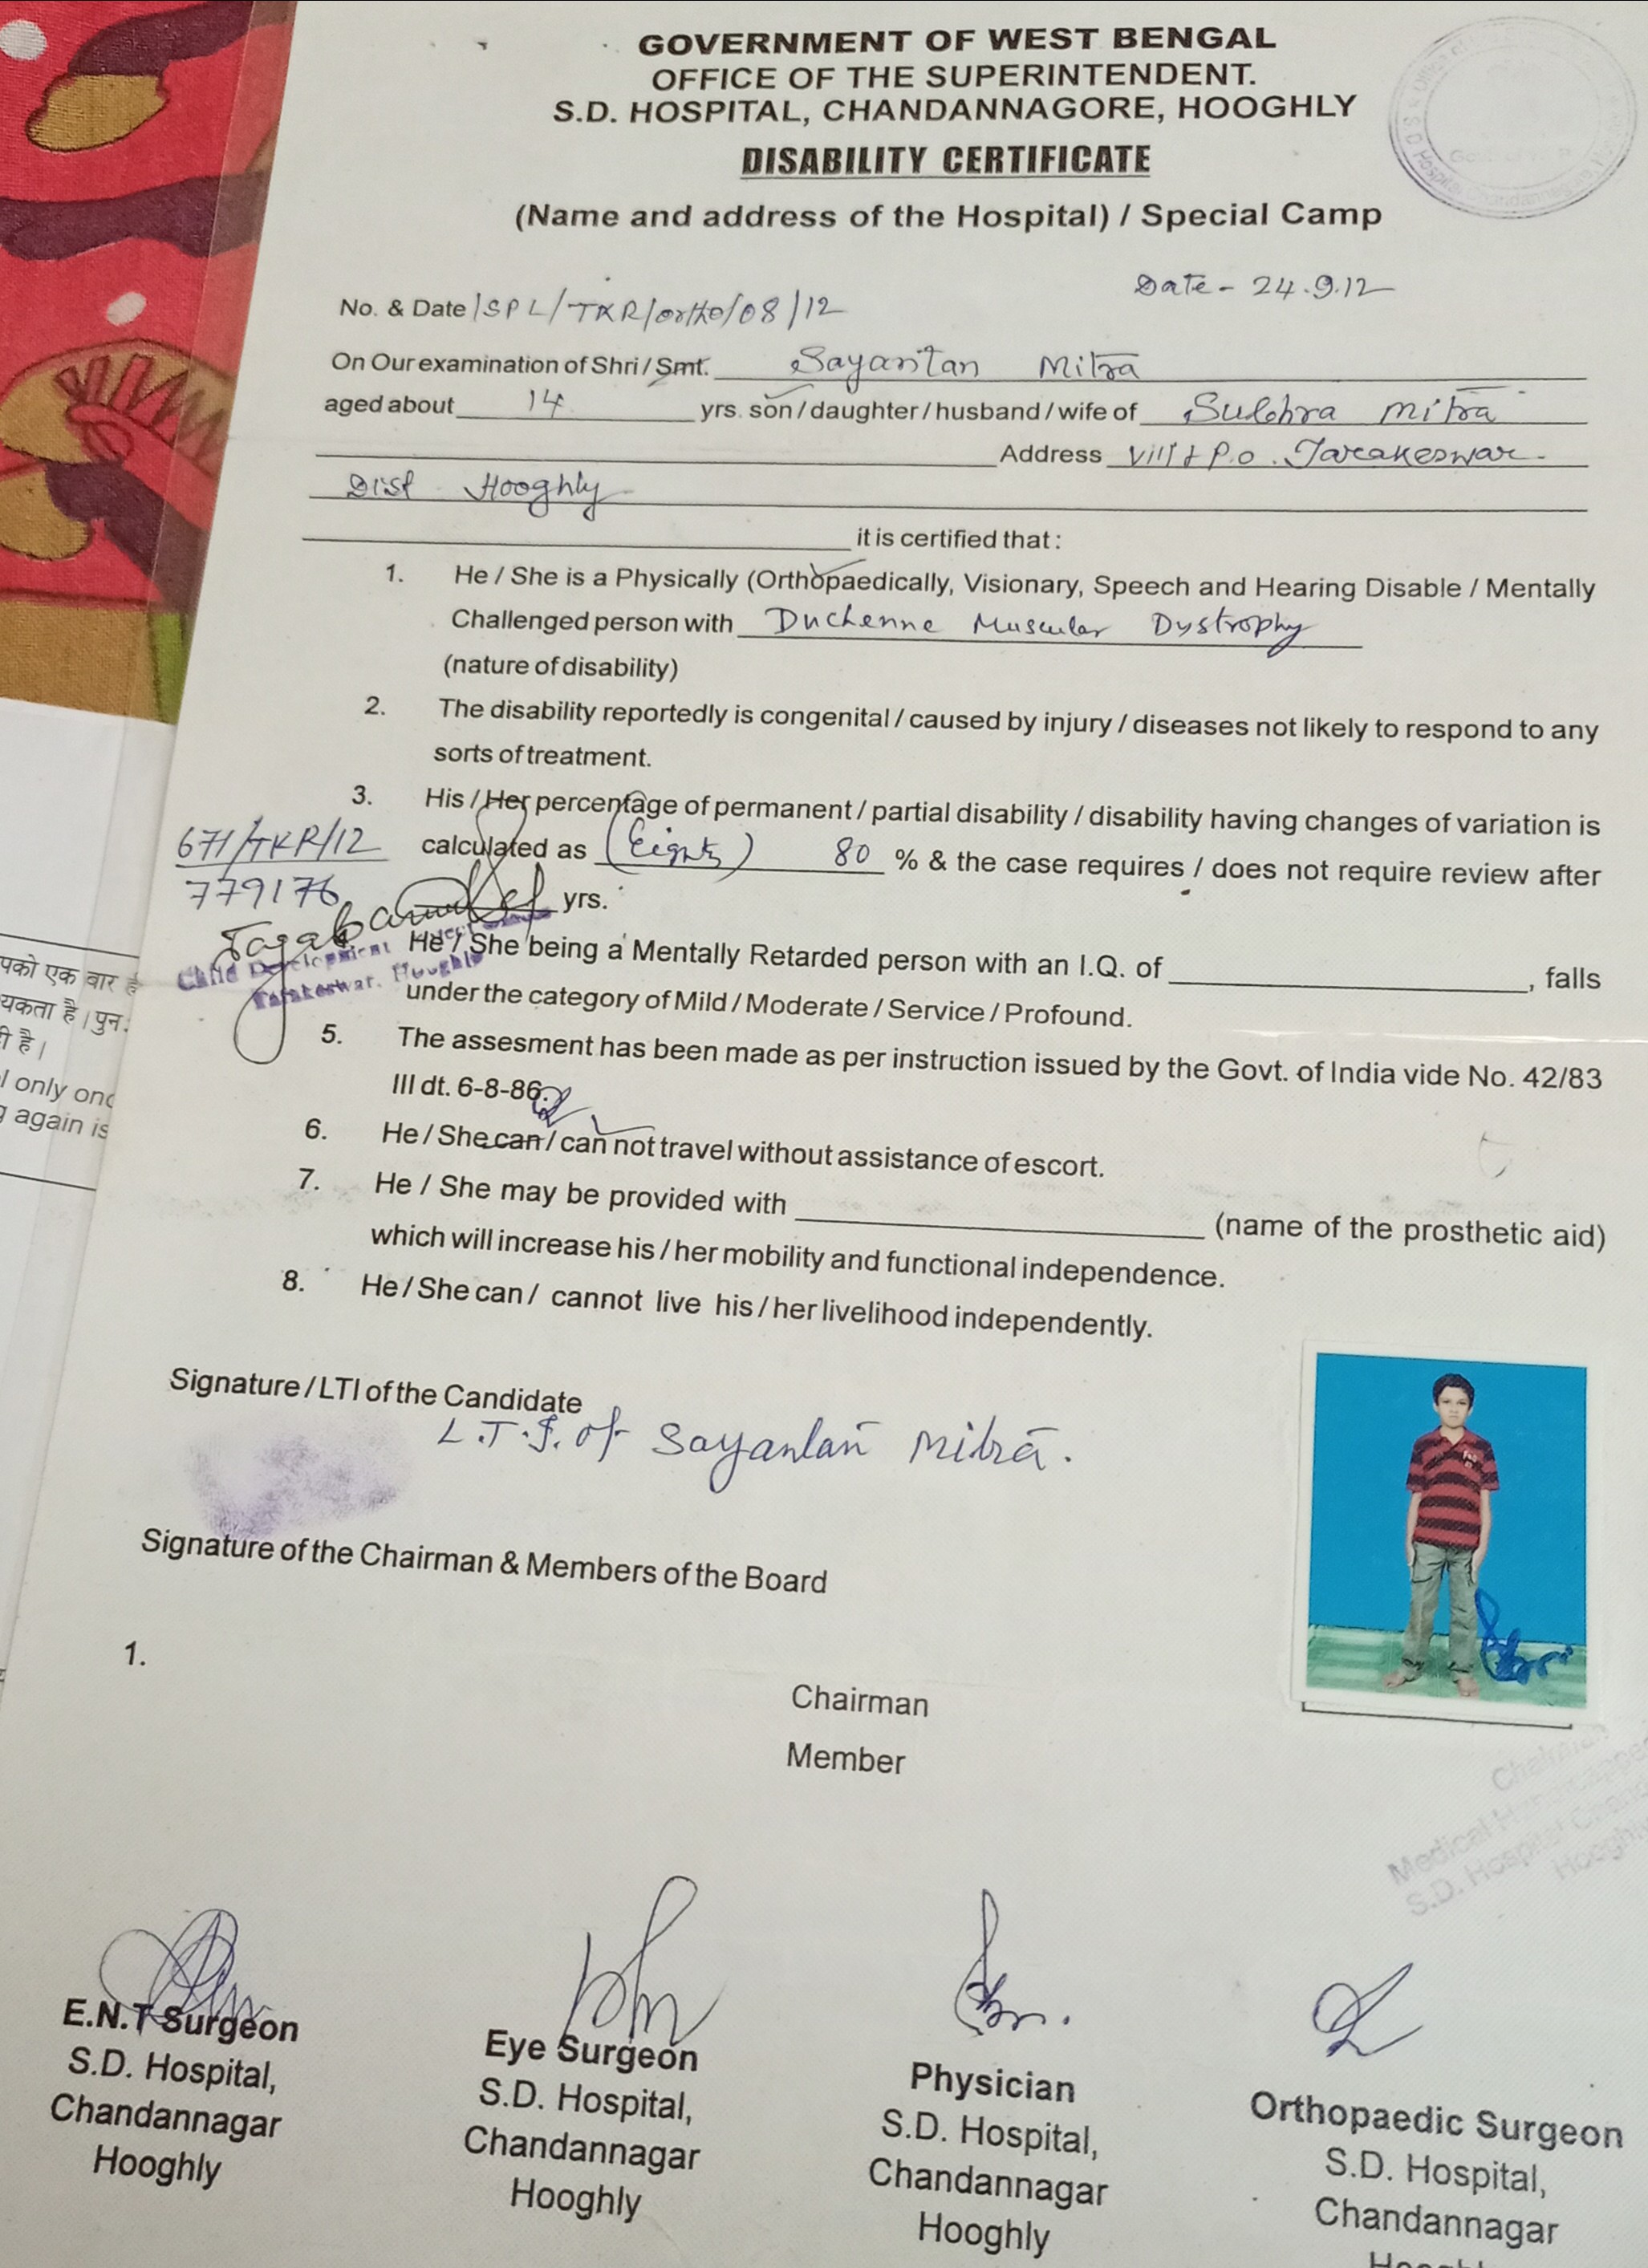 GOVERNMENT OF WEST BENGAL
OFFICE OF THE SUPERINTENDENT.
S.D. HOSPITAL, CHANDANNAGORE, HOOGHLY
DISABILITY CERTIFICATE
(Name and address of the Hospital) / Special Camp
Date - 24.9.12
No. & Date /SPL/TKR/ortho/08/12
On Our examination of Shri / Smt. Sayantan Mitra
aged about 14 yrs. son / daughter / husband / wife of Subhra Mitra
Address Vill & P.O. Tarakeswar.
Dist Hooghly
it is certified that :
1. He / She is a Physically (Orthopaedically, Visionary, Speech and Hearing Disable / Mentally
Challenged person with Duchenne Muscular Dystrophy
(nature of disability)
2. The disability reportedly is congenital / caused by injury / diseases not likely to respond to any
sorts of treatment.
3. His / Her percentage of permanent / partial disability / disability having changes of variation is
671/TKR/12
calculated as (Eighty) 80 % & the case requires / does not require review after
779176
yrs.
4. He / She being a Mentally Retarded person with an I.Q. of , falls
Child Development
Tarakeswar, Hooghly
under the category of Mild / Moderate / Service / Profound.
5. The assesment has been made as per instruction issued by the Govt. of India vide No. 42/83
III dt. 6-8-86.
6. He / She can / can not travel without assistance of escort.
7. He / She may be provided with (name of the prosthetic aid)
which will increase his / her mobility and functional independence.
8. He / She can / cannot live his / her livelihood independently.
पको एक बार
यकता है। पुन:
है।
only
again is
Signature / LTI of the Candidate
L.T.I. of Sayantan Mitra.
Signature of the Chairman & Members of the Board
1.
Chairman
Member
Chairman
Medical
S.D. Hospital
Hooghly
E.N.T Surgeon
S.D. Hospital,
Chandannagar
Hooghly
Eye Surgeon
S.D. Hospital,
Chandannagar
Hooghly
Physician
S.D. Hospital,
Chandannagar
Hooghly
Orthopaedic Surgeon
S.D. Hospital,
Chandannagar